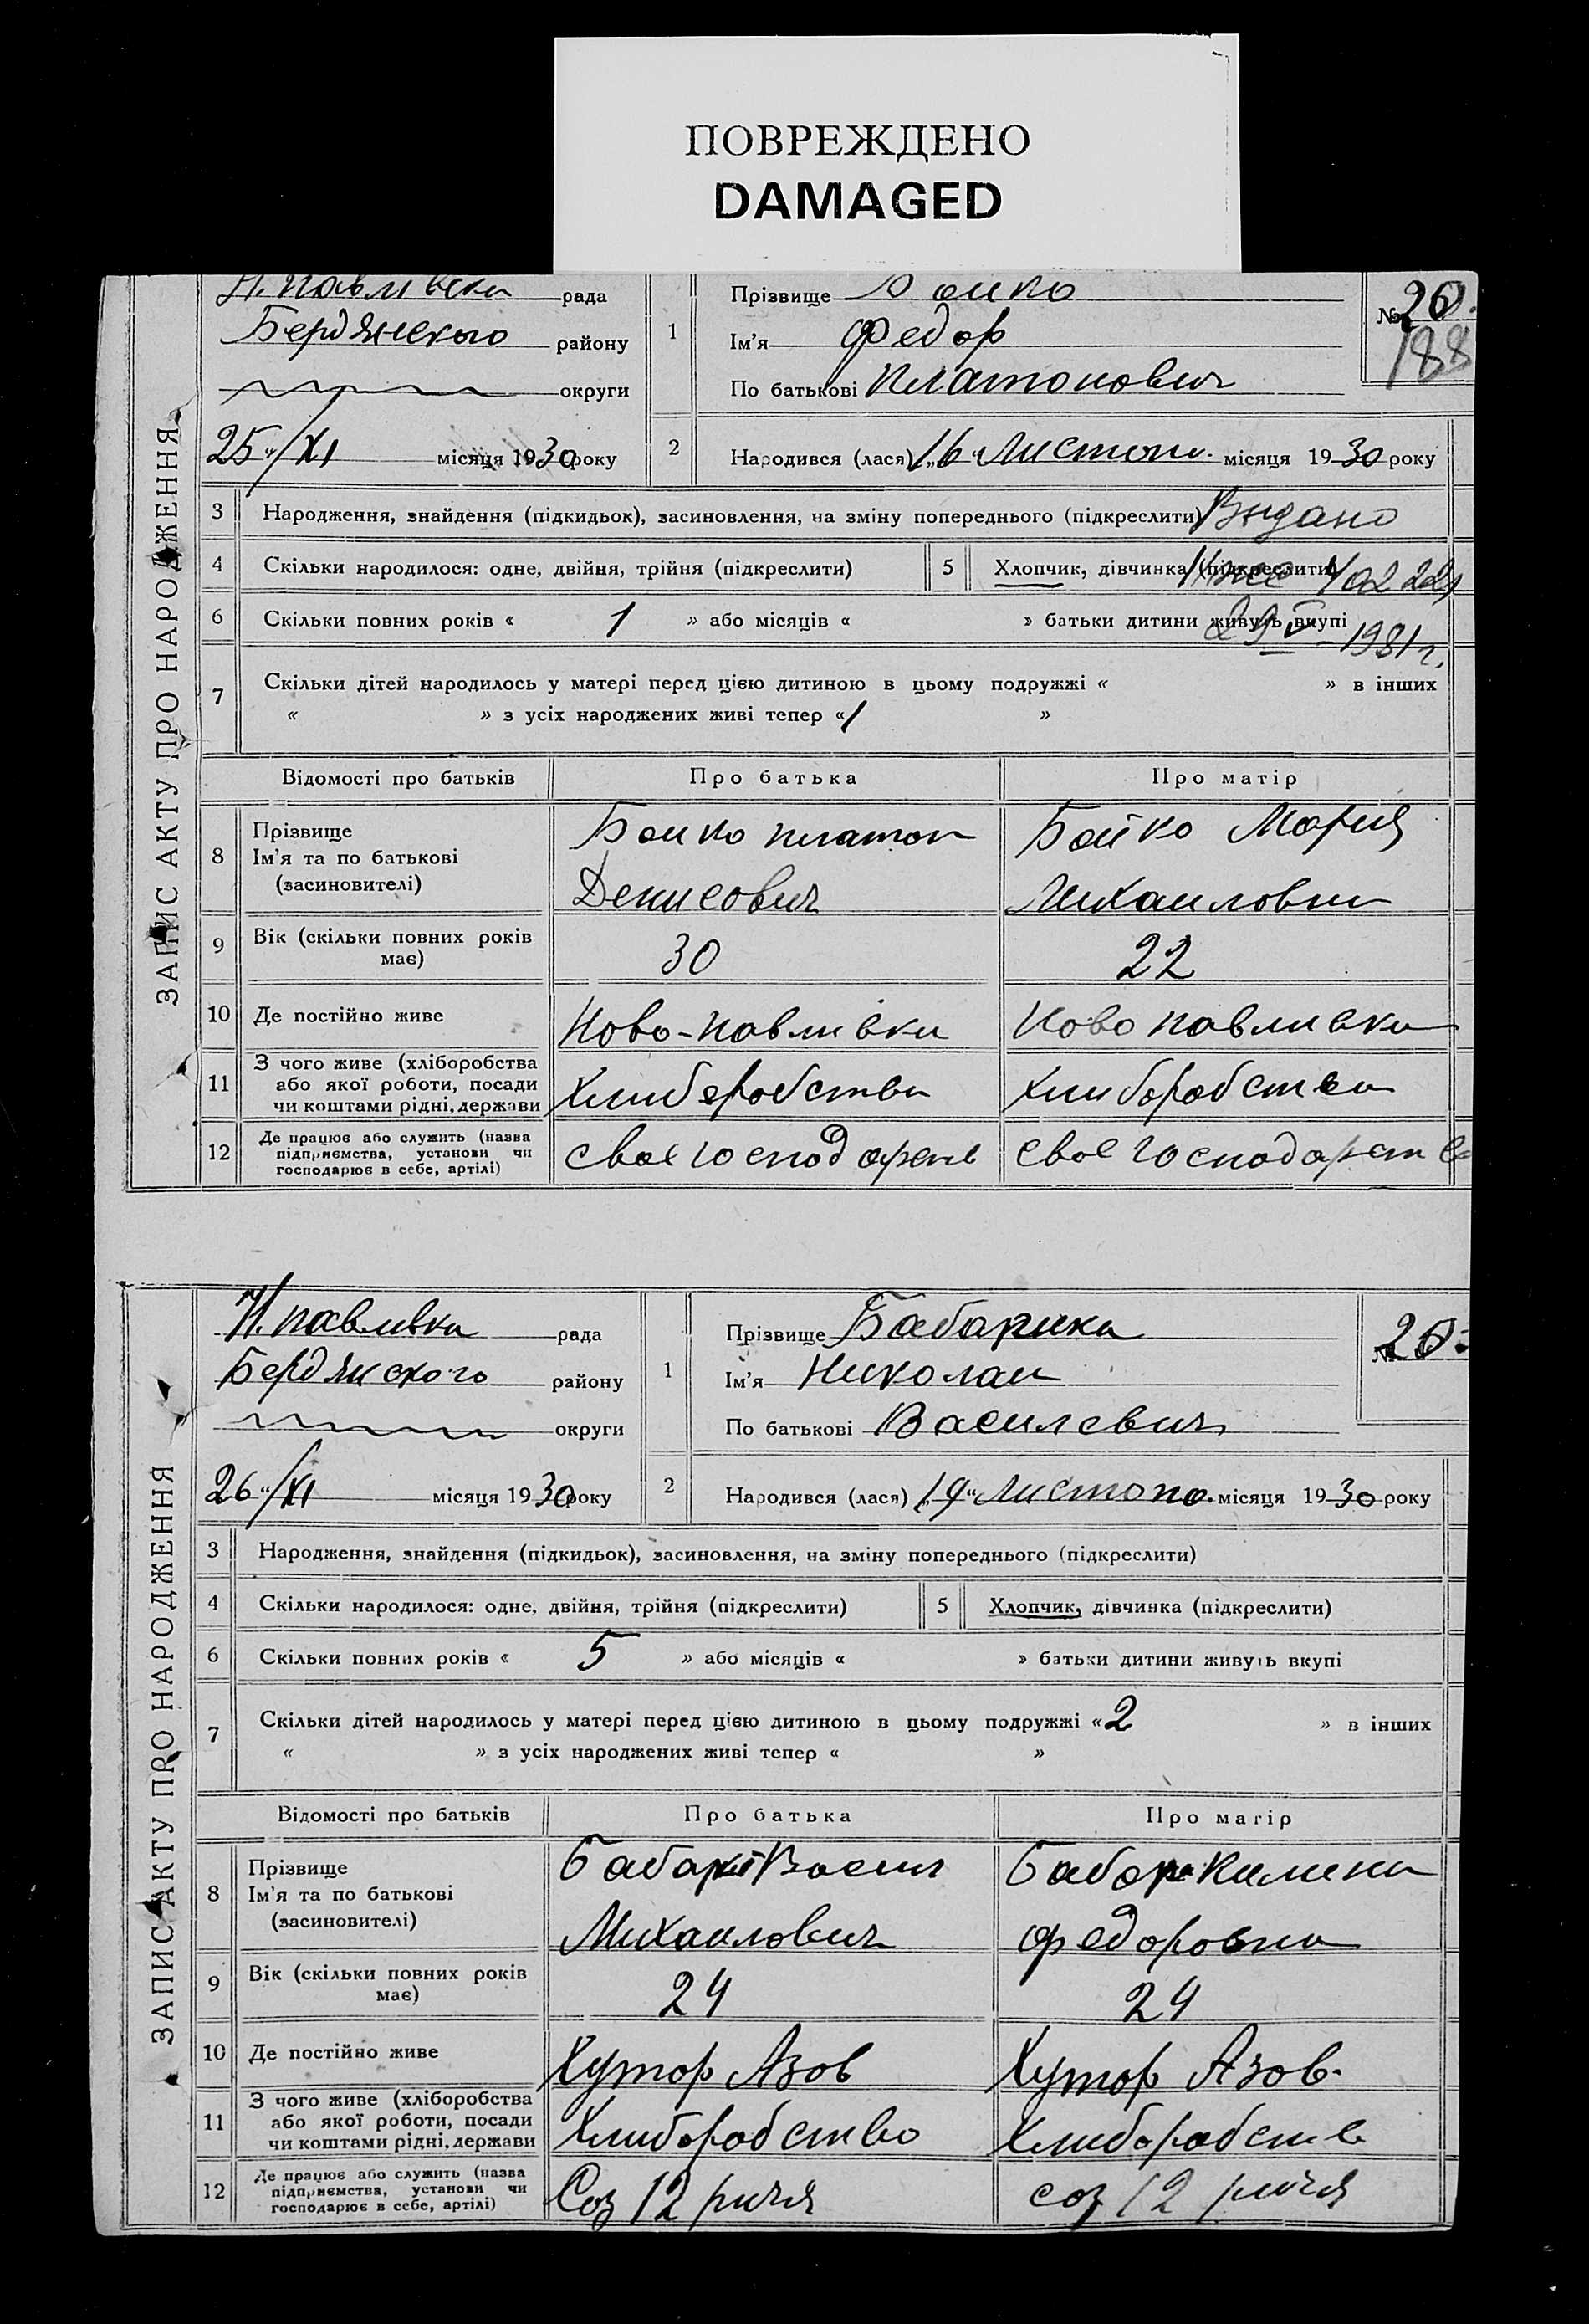 ПОВРЕЖДЕНО
DAMAGED
ЗАПИС АКТУ ПРО НАРОДЖЕННЯ
Н. Павлівска рада
Бердянского району
округи
25 "/XI місяця 1930 року
1
Прізвище Бойко
Ім'я Федор
По батькові Платонович
№ 20.
188
2
Народився (лася) „16" Листопа. місяця 1930 року
3 Народження, знайдення (підкидьок), засиновлення, на зміну попереднього (підкреслити) Выдано
4 Скільки народилося: одне, двійня, трійня (підкреслити) 5 Хлопчик, дівчинка (підкреслити)
6 Скільки повних років « 1 » або місяців « » батьки дитини живуть вкупі
29 V – 1981 г.
7 Скільки дітей народилось у матері перед цією дитиною в цьому подружжі « » в інших
« » з усіх народжених живі тепер «1 »
Відомості про батьків Про батька Про матір
8 Прізвище
Ім'я та по батькові
(засиновителі)
Бойко Платон
Денисович
Бойко Мария
Михаиловна
9 Вік (скільки повних років має) 30 22
10 Де постійно живе Ново-Павливка Ново Павливка
11 З чого живе (хліборобства
або якої роботи, посади
чи коштами рідні, держави
Хлиборобства Хлиборобства
12 Де працює або служить (назва
підприємства, установи чи
господарює в себе, артілі)
свое господарств свое господарства
ЗАПИС АКТУ ПРО НАРОДЖЕННЯ
Н. Павливка рада
Бердянского району
округи
26 "/XI місяця 1930 року
1
Прізвище Бабарика
Ім'я Николаи
По батькові Василевич
№ 20
2
Народився (лася) „19" Листопа. місяця 1930 року
3 Народження, знайдення (підкидьок), засиновлення, на зміну попереднього (підкреслити)
4 Скільки народилося: одне, двійня, трійня (підкреслити) 5 Хлопчик, дівчинка (підкреслити)
6 Скільки повних років « 5 » або місяців « » батьки дитини живуть вкупі
7 Скільки дітей народилось у матері перед цією дитиною в цьому подружжі «2 » в інших
« » з усіх народжених живі тепер « »
Відомості про батьків Про батька Про матір
8 Прізвище
Ім'я та по батькові
(засиновителі)
Василь
Михаилович
Федоровна
9 Вік (скільки повних років має) 24 24
10 Де постійно живе Хутор Азов Хутор Азов.
11 З чого живе (хліборобства
або якої роботи, посади
чи коштами рідні, держави
Хлиборобство Хлиборобств
12 Де працює або служить (назва
підприємства, установи чи
господарює в себе, артілі)
Соз 12 риччя соз 12 риччя